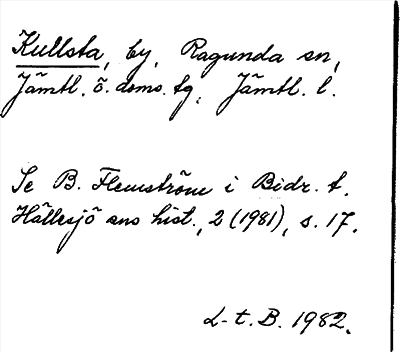 Kullsta, by, Ragunda sn,
Jämtl. ö. doms. tg, Jämtl. l.
Se B. Flemström i Bidr. t.
Hällesjö sns hist., 2 (1981), s. 17.
L-t. B. 1982.